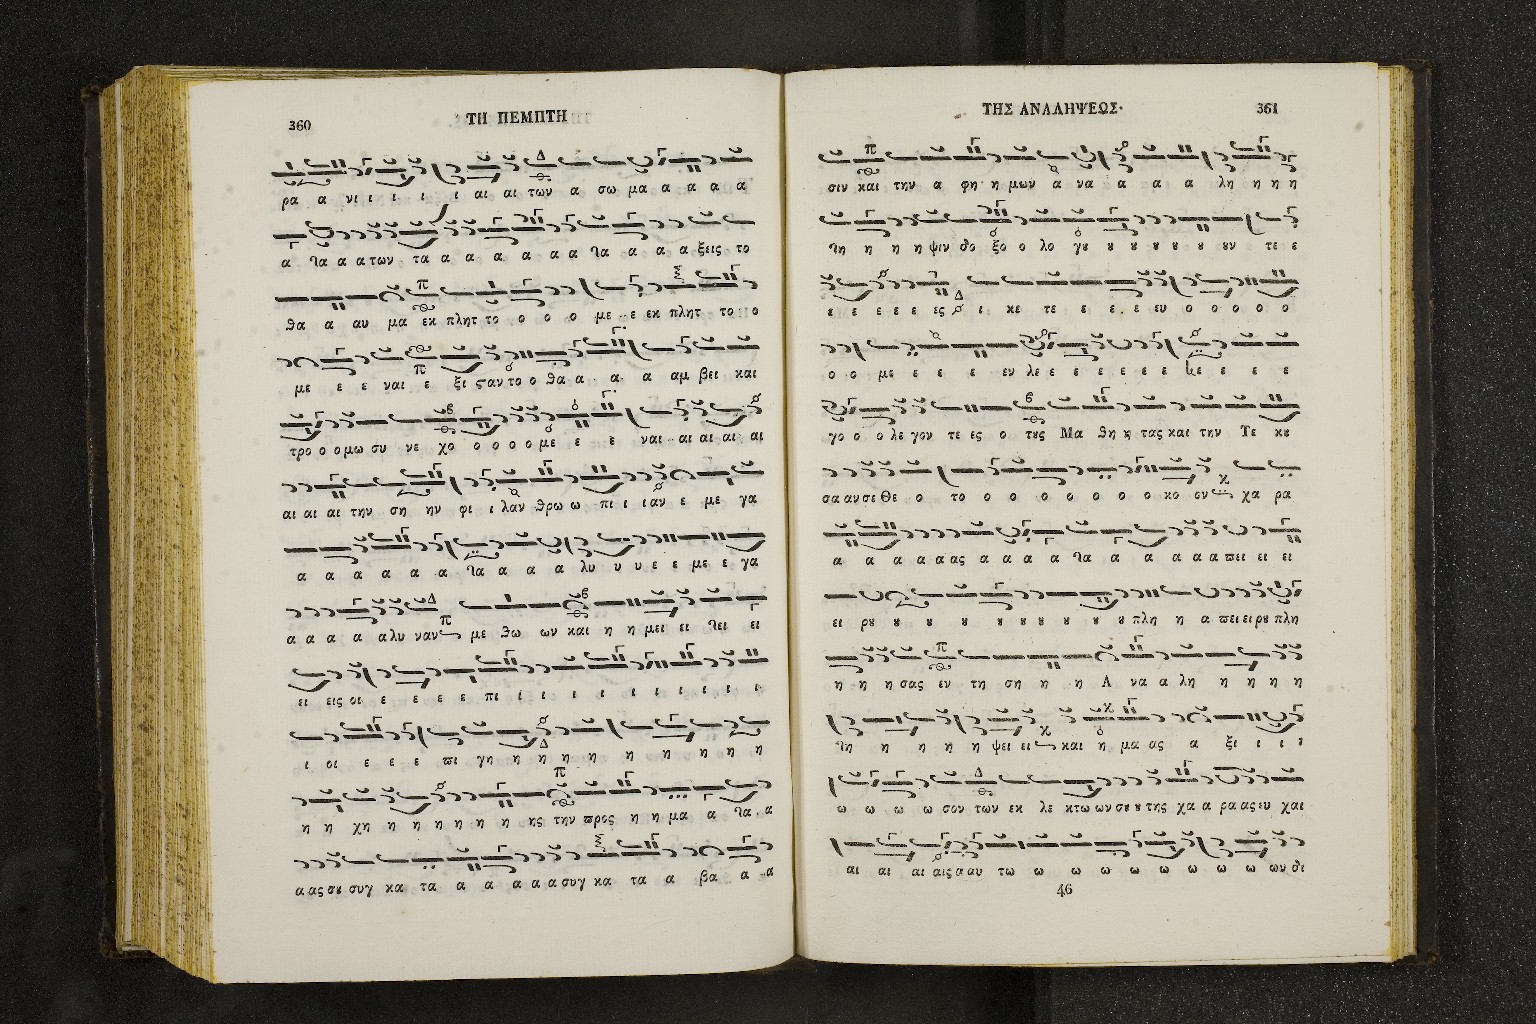 360
ΤΗ ΠΕΜΠΤΗ
ρα α νι ι ι ι ι αι αι των α σω μα α α α α
α τα α α των τα α α α α α α τα α α α ξεις το
θα α αυ μα εκ πλητ το ο ο ο με ε εκ πλητ το ο
με ε ε ναι ε ξι ςαν το ο θα α α α αμ βει και
τρο ο ο μω συ νε χο ο ο ο ο με ε ε ναι αι αι αι αι
αι αι αι την ση ην φι ι λαν θρω ω πι ι ι αν ε με γα
α α α α α α τα α α α λυ υ υ ε ε με ε γα
α α α α α λυ ναν με θω ων και η η μει ει τει ει
ει εις οι ε ε ε ε πι ι ι ι ι ι ι ι ι ι
ι οι ε ε ε πι γη η η η η η η η η
η η χη η η η η η η ης την προς η η μα α τα α
α ας σȣ συγ κα τα α α α α α συγ κα τα α βα α α
ΤΗΣ ΑΝΑΛΗΨΕΩΣ·
361
σιν και την α φη η μων α να α α α λη η η η
τη η η η ψιν δο ξο ο λο γȣ ȣ ȣ ȣ ȣ ȣ ȣν τε ε
ε ε ε ε ε ες ι κε τε ε ε ε ευ ο ο ο ο ο
ο ο με ε ε ε εν λε ε ε ε ε ε ε ε με ε ε ε
γο ο ο λε γον τε ες ο τȣς Μα θη η τας και την Τε κȣ
σα αν σε Θε ο το ο ο ο ο ο ο ο κο ον χα ρα
α α α α α ας α α α α τα α α α α α πει ει ει
ει ρȣ ȣ ȣ ȣ ȣ ȣ ȣ ȣ ȣ πλη η α πει ει ρȣ πλη
η η η σας εν τη ση η η Α να α λη η η η η
τη η η η η ψει ει και η μα ας α ξι ι ι
ω ω ω ω σον των εκ λε κτω ων σȣ ȣ της χα α ρα ας ευ χαι
αι αι αι αις α αυ τω ω ω ω ω ω ω ω ω ων δι
46